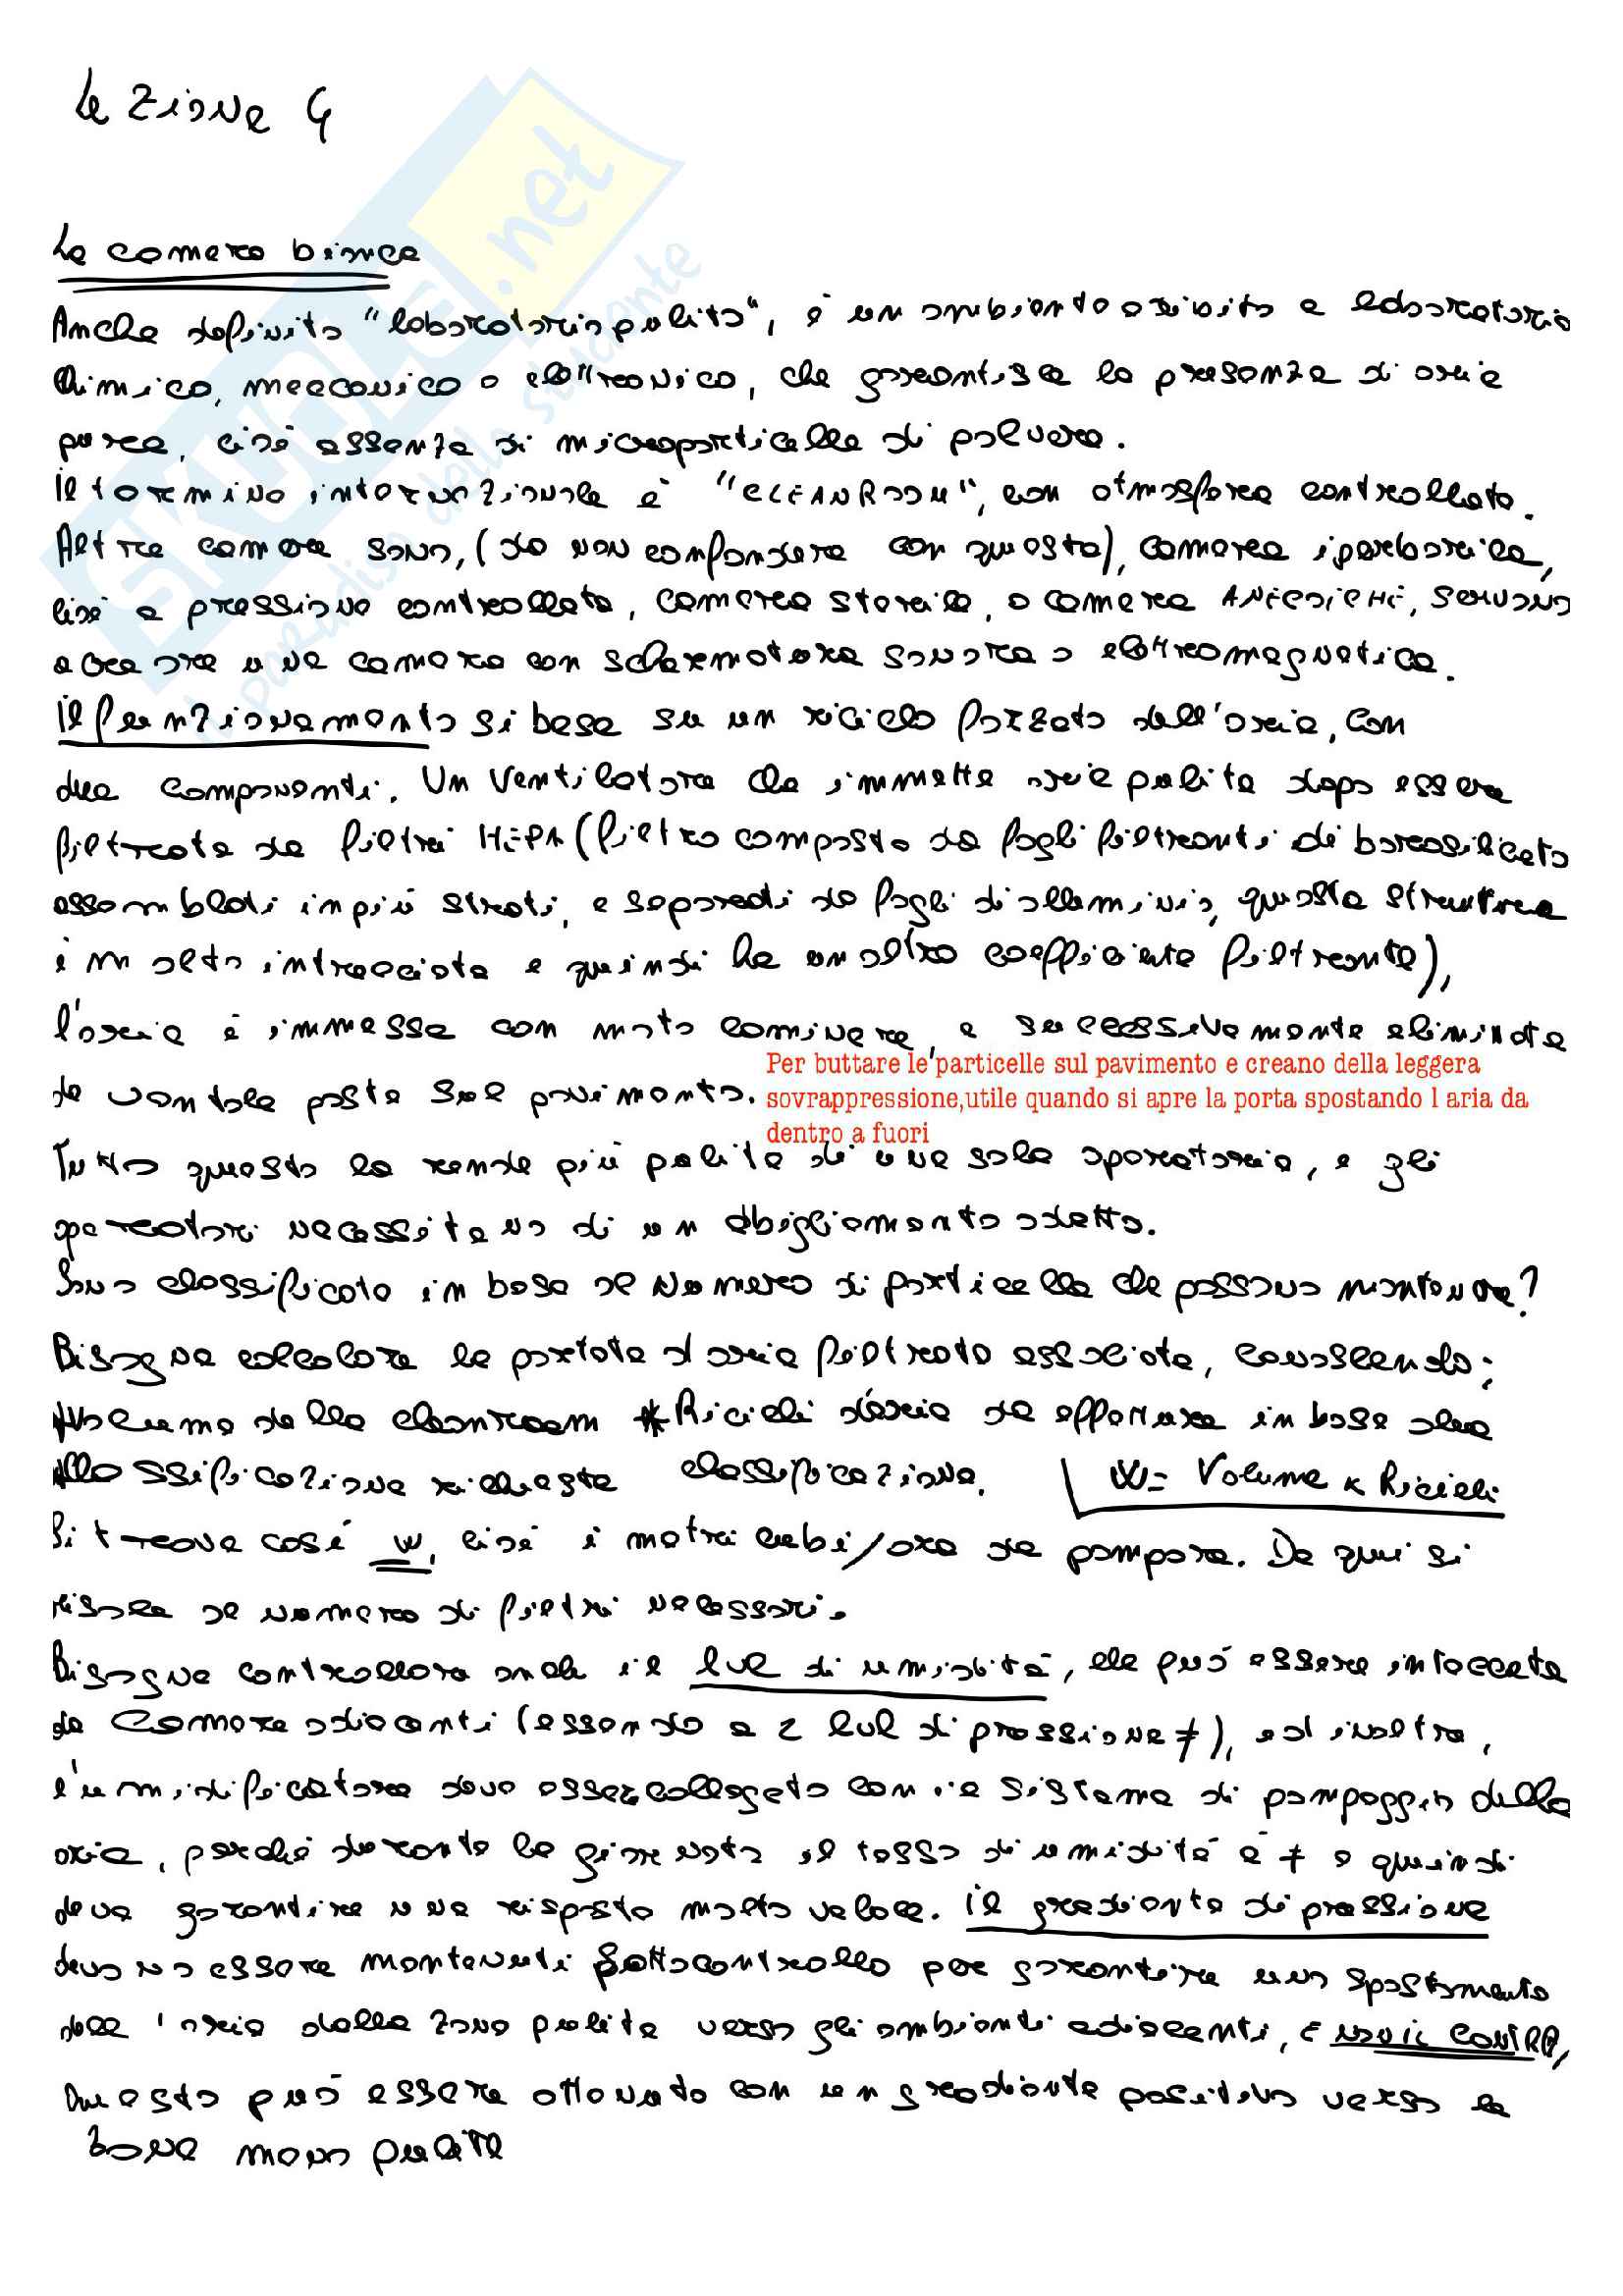 Lezione 4
La camera bianca
Anche definita "laboratorio pulito", è un ambiente adibito a laboratorio
chimico, meccanico o elettronico, che garantisce la presenza di aria
pura, cioè assenza di microparticelle di polvere.
Il termine internazionale è "CLEANROOM", con atmosfera controllata.
Altre camere sono, (da non confondere con questa), camera iperbarica,
cioè a pressione controllata, camera sterile, o camera ANECOICHE, servono
a creare una camera con schermatura sonora o elettromagnetica.
Il funzionamento si basa su un riciclo forzato dell'aria, con
due componenti. Un ventilatore che immette aria pulita dopo essere
filtrata da filtri HEPA (filtro composto da fogli filtranti di borosilicato
assemblati in più strati, e separati da fogli di alluminio, questa struttura
è molto intrecciata e quindi ha un altro coefficiente filtrante),
l'aria è immessa con moto laminare, e successivamente eliminata
Per buttare le particelle sul pavimento e creano della leggera
da ventole poste sul pavimento.
sovrappressione,utile quando si apre la porta spostando l aria da
dentro a fuori
Tutto questo la rende più pulita di una sala operatoria, e gli
operatori necessitano di un abigliamento adatto.
Sono classificate in base al numero di particelle che possono mantenere?
Bisogna calcolare la portata d aria filtrata associata, conoscendo:
*Volume della cleanroom *Ricicli d'aria da effettuare in base alla
classificazione richiesta classificazione. W= Volume x Ricicli
Si trova così W, cioè i metri cubi/ora da pompare. Da qui si
risale al numero di filtri necessari.
Bisogna controllare anche il lvl di umidità, che può essere intaccata
da camere adiacenti (essendo a 2 lvl di pressione ≠), ed inoltre,
l'umidificatore deve esser collegato con il sistema di pompaggio della
aria, perché durante la giornata il tasso di umidità è ≠ e quindi
deve garantire una risposta molto veloce. Il gradiente di pressione
devono essere mantenuti sotto controllo per garantire uno spostamento
dell'aria dalla zona pulita verso gli ambienti adiacenti, E NON IL CONTRA,
Questo può essere ottenuto con un gradiente positivo verso la
zona meno pulita